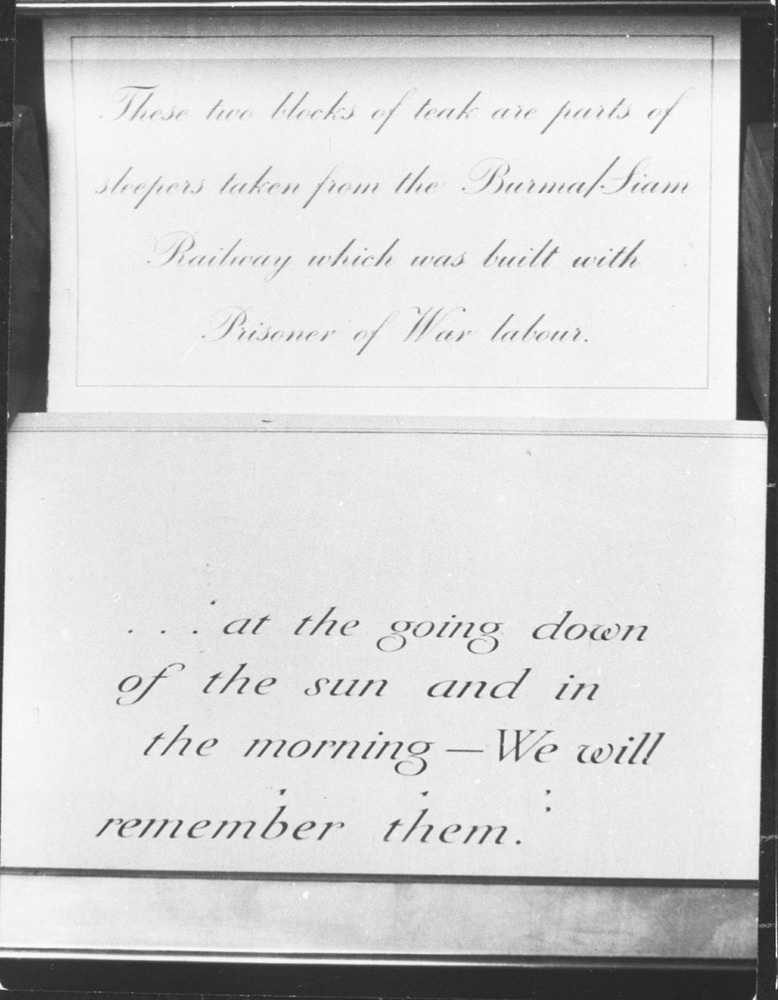 These two blocks of teak are parts of
sleepers taken from the Burma/Siam
Railway which was built with
Prisoner of War labour.
. . . at the going down
of the sun and in
the morning — We will
remember them.